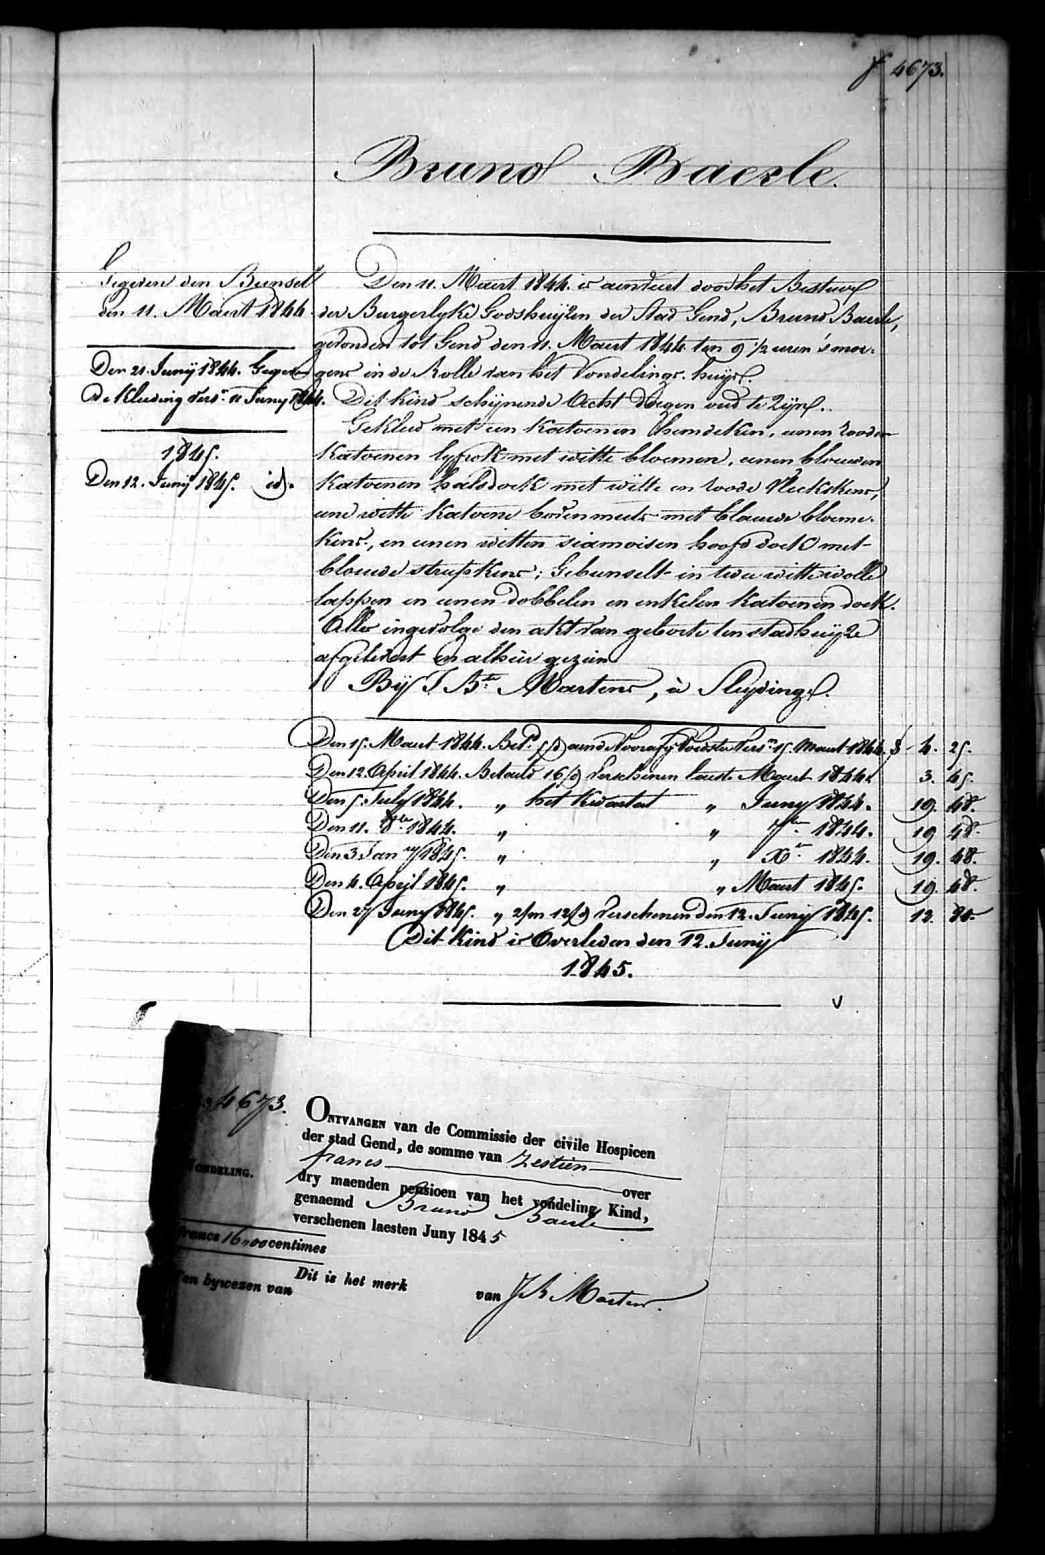 f 4673.
Bruno Baerle.
Gegeven den Bunsel
den 11. Maert 1844.
Den 21. Junij 1844. Gegeven
de Kleeding vers.n 11 Juny 1844.
1845.
Den 12. Junij 1845. id.
Den 11. Maert 1844. is aenveert door het Bestuer
der Burgerlyke Godshuijzen der Stad Gend, Bruno Baerle,
gevonden tot Gend den 11. Maert 1844 ten 9 1/2 uren 's mor-
gens in de Rolle van het Vondelings-huijs.
Dit kind schijnende Acht dagen oud te zijn.
Gekleed met een Katoenen hemdeken, eenen rooden
Katoenen lyfrok met witte bloemen, eenen blauwen
Katoenen halsdoek met witte en roode vleckskens,
eene witte katoene bovenmuts met blauwe bloeme-
kens, en eenen witten siamoisen hoofddoek met
blauwe streepkens; Gebunselt in twee witte wolle
lappen en eenen dobbelen en enkelen katoenen doek.
Alles ingevolge den akt van geboorte ten stadhuijze
afgelevert en alhier gezien
Bij J. Bte Martens, à Sluydinge.
Den 15. Maert 1844. Bet.d aende Voorafg Voedster Vers.n 15. Maert 1844. f 4. 25.
Den 12. April 1844. Betaeld 16/d Verschenen laeste Maert 1844. 3. 45.
Den 5. July 1844. " het Kwartael " Juny 1844. 19. 48.
Den 11. 8bre 1844. " " 7bre 1844. 19 48.
Den 3 Jan.ry 1845. " " Xbre 1844. 19. 48.
Den 4. April 1845. " " Maert 1845. 19. 48.
Den 27 Juny 1845. " 2/m 12/d Verschenen den 12. Junij 1845. 12. 80.
Dit Kind is Overleden den 12. Junij
1845.
4673.
VONDELING.
ONTVANGEN van de Commissie der civile Hospicen
der stad Gend, de somme van Zestien
francs over
dry maenden pensioen van het vondeling Kind,
genaemd Bruno Baerle
verschenen laesten Juny 1845
francs 16 00 centimes
Ten bywezen van
Dit is het merk
van J B Martens.